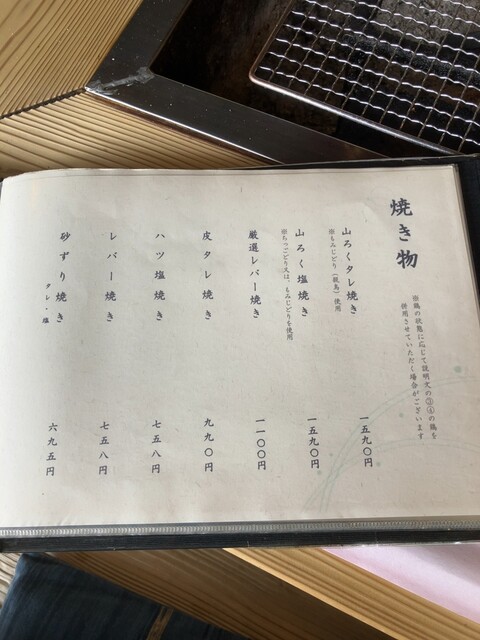 焼き物
※鶏の状態に応じて説明文の③④の鶏を
併用させていただく場合がございます
山ろくタレ焼き
※もみじどり（親鳥）使用
一五九〇円
山ろく塩焼き
※ちっこどり又は、もみじどりを使用
一五九〇円
厳選レバー焼き
一一〇〇円
皮タレ焼き
九九〇円
ハツ塩焼き
七五八円
レバー焼き
七五八円
砂ずり焼き
タレ・塩
六九五円